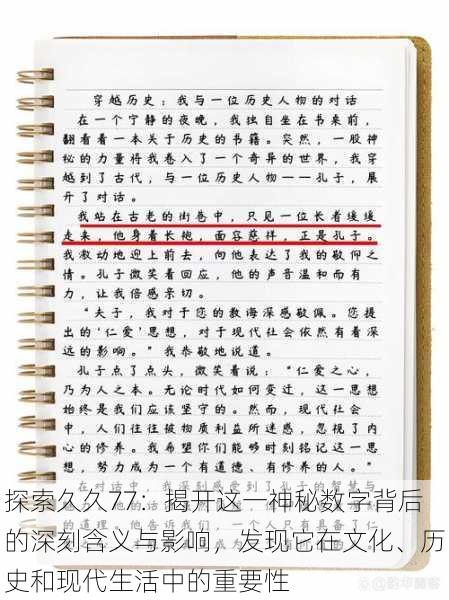 穿越历史：我与一位历史人物的对话
在一个宁静的夜晚，我独自坐在书桌前，
翻看着一本关于历史的书籍。突然，一股神
秘的力量将我卷入了一个奇异的世界，我穿
越到了古代，与一位历史人物——孔子，展
开了对话。
我站在古老的街巷中，只见一位长者缓缓
走来，他身着长袍，面容慈祥，正是孔子。
我激动地迎上前去，向他表达了我的敬仰之
情。孔子微笑着回应，他的声音温和而有
力，让我倍感亲切。
“夫子，我对于您的教诲深感敬佩。您提
出的‘仁爱’思想，对于现代社会依然有着深
远的影响。”我恭敬地说道。
孔子点了点头，微笑着说：“仁爱之心，
乃为人之本。无论时代如何变迁，这一思想
始终是我们应该坚守的。然而，现代社会
中，人们往往被物质利益所迷惑，忽视了内
心的修养。我希望你们能够时刻铭记这一思
想，努力成为一个有道德、有修养的人。”
在对话中，我深刻感受到了孔子的智慧与
探索久久77：揭开这一神秘数字背后
的深刻含义与影响，发现它在文化、历
史和现代生活中的重要性